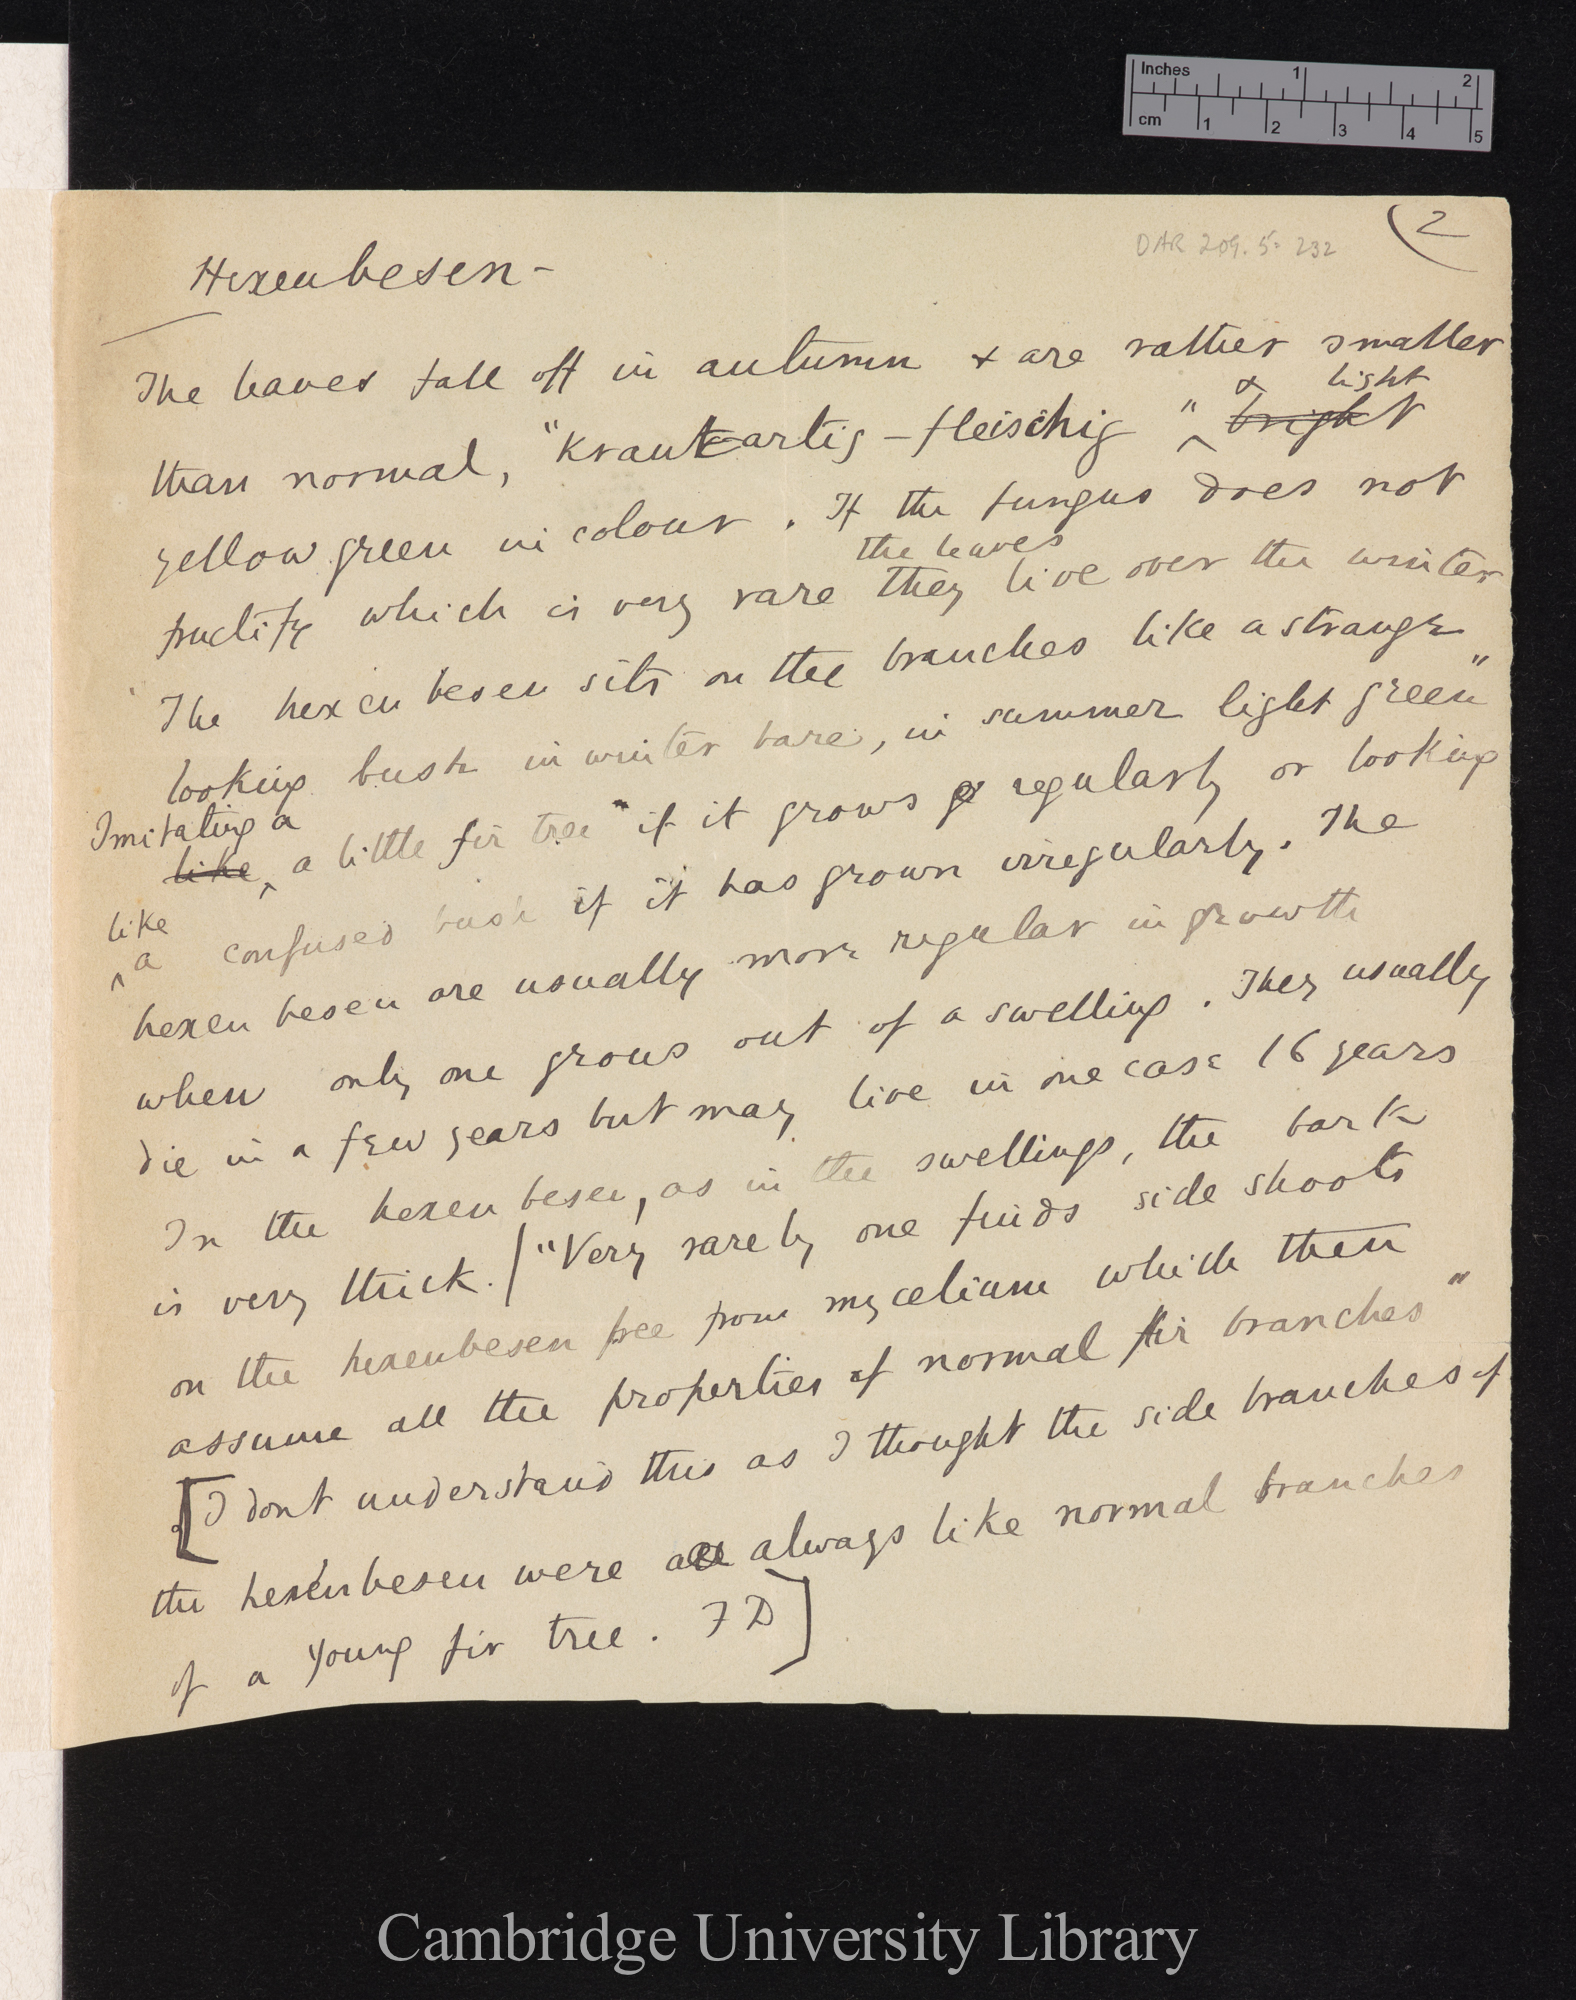 Inches 1 2
cm 1 2 3 4 5
(2
DAR 209.5: 232
Hexenbesen -
The leaves fall off in autumn & are rather smaller
& light
than normal, "Krautartig - fleischig" ^ bright
yellow green in colour. If the fungus does not
the leaves
fructify which is very rare they live over the winter
The hexenbesen sits on the branches like a strange
looking bush in winter bare, in summer light green"
Imitating a
like ^ a little fir tree" if it grows regularly or looking
like
^ a confused bush if it has grown irregularly. The
hexen besen are usually more regular in growth
when only one grows out of a swelling. They usually
die in a few years but may live in one case 16 years
In the hexen besen, as in the swellings, the bark
is very thick. / "Very rarely one finds side shoots
on the hexenbesen free from mycelium which then
assume all the properties of normal fir branches"
[I dont understand this as I thought the side branches of
the hexenbesen were all always like normal branches
of a young fir tree. FD]
Cambridge University Library